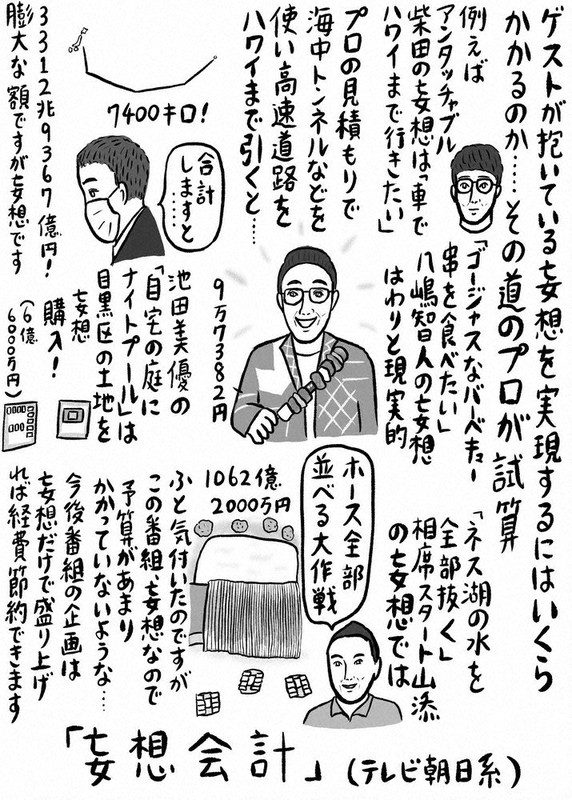 ゲストが抱いている妄想を実現するにはいくら
かかるのか……その道のプロが試算
例えば
アンタッチャブル
柴田の妄想は「車で
ハワイまで行きたい」
プロの見積もりで
海中トンネルなどを
使い高速道路を
ハワイまで引くと…
7400キロ!
合計
しますと…
3312兆9367億円!
膨大な額ですが妄想です
「ゴージャスなバーベキュー
串を食べたい」
八嶋智人の妄想
はわりと現実的
9万7382円
池田美優の
「自宅の庭に
ナイトプール」は
目黒区の土地を
妄想
購入!
(6億
6000万円)
「ネス湖の水を
全部抜く」
相席スタート山添
の妄想では
ホース全部
並べる大作戦
1062億
2000万円
ふと気付いたのですが
この番組、妄想なので
予算があまり
かかっていないような…
今後番組の企画は
妄想だけで盛り上げ
れば経費節約できます
「妄想会計」(テレビ朝日系)